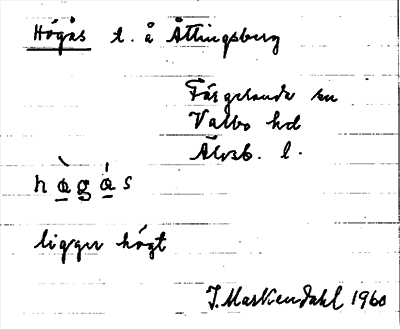 Högås t. å Åttingsberg
Färgelanda sn
Valbo hd
Älvsb. l.
hògás
ligger högt
J. Markendahl 1960